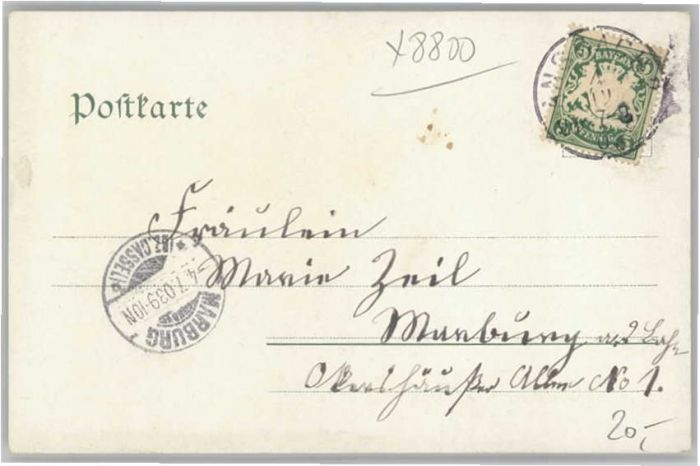 x8800
Postkarte
BAYERN
5
PFENNIG
Fräulein
Marie Zeil
Marburg a/d Lahn
Okershäuser Allee No 1.
MARBURG
(BZ. CASSEL)
4.7.03 9-10N
20,-